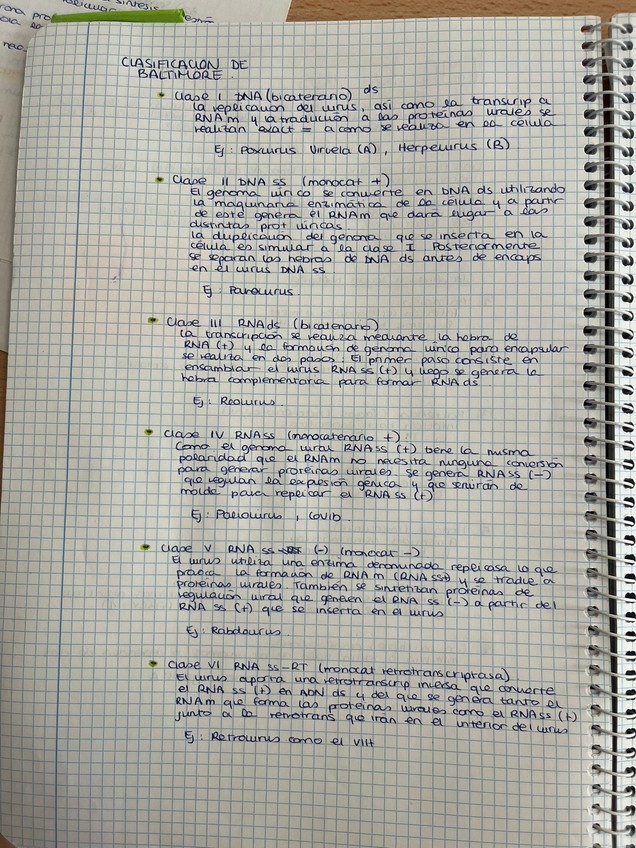 CLASIFICACION DE
BALTIMORE.
Clase I DNA (bicaterario) ds
La replicación del virus, así como la transcrip a
RNAm y la tradución a las proteínas virales se
realizan exact = a como se realiza en la célula
Ej: Poxvirus Viruela (A), Herpevirus (B)
Clase II DNA ss (monocat +)
El genoma vírico se convierte en DNA ds utilizando
la maquinaria enzimática de la célula y a partir
de este genera el RNAm que dará lugar a las
distintas prot víricas
La duplicación del genoma que se inserta en la
célula es similar a la clase I Posteriormente
se separan las hebras de DNA ds antes de encaps
en el virus DNA ss
Ej: Parvovirus.
Clase III RNAds (bicatenario)
La transcripción se realiza mediante la hebra de
RNA (+) y la formación de genoma vírico para encapsular
se realiza en dos pasos. El primer paso consiste en
ensamblar el virus RNA ss (+) y luego se genera la
hebra complementaria para formar RNA ds
Ej: Reovirus.
Clase IV RNAss (monocatenario +).
Como el genoma viral RNAss (+) tiene la misma
polaridad que el RNAm no necesita ninguna conversión
para generar proteínas virales Se genera RNAss (-)
que regulan la expresión génica y que servirán de
molde para replicar el RNAss (+)
Ej: Poliovirus, COVID.
Clase V RNA ss (-) (monocat -)
El virus utiliza una enzima denominada replicasa lo que
provoca la formación de RNAm (RNA ss+) y se traduce a
proteínas virales También se sintetizan proteínas de
regulación viral que generen el RNA ss (-) a partir del
RNA ss (+) que se inserta en el virus
Ej: Rabdovirus.
Clase VI RNA ss-RT (monocat retrotranscriptasa)
El virus aporta una retrotranscrip inversa que convierte
el RNA ss (+) en ADN ds y del que se genera tanto el
RNAm que forma las proteínas virales como el RNAss (+)
junto a la retrotrans que irán en el interior del virus
Ej: Retrovirus como el VIH